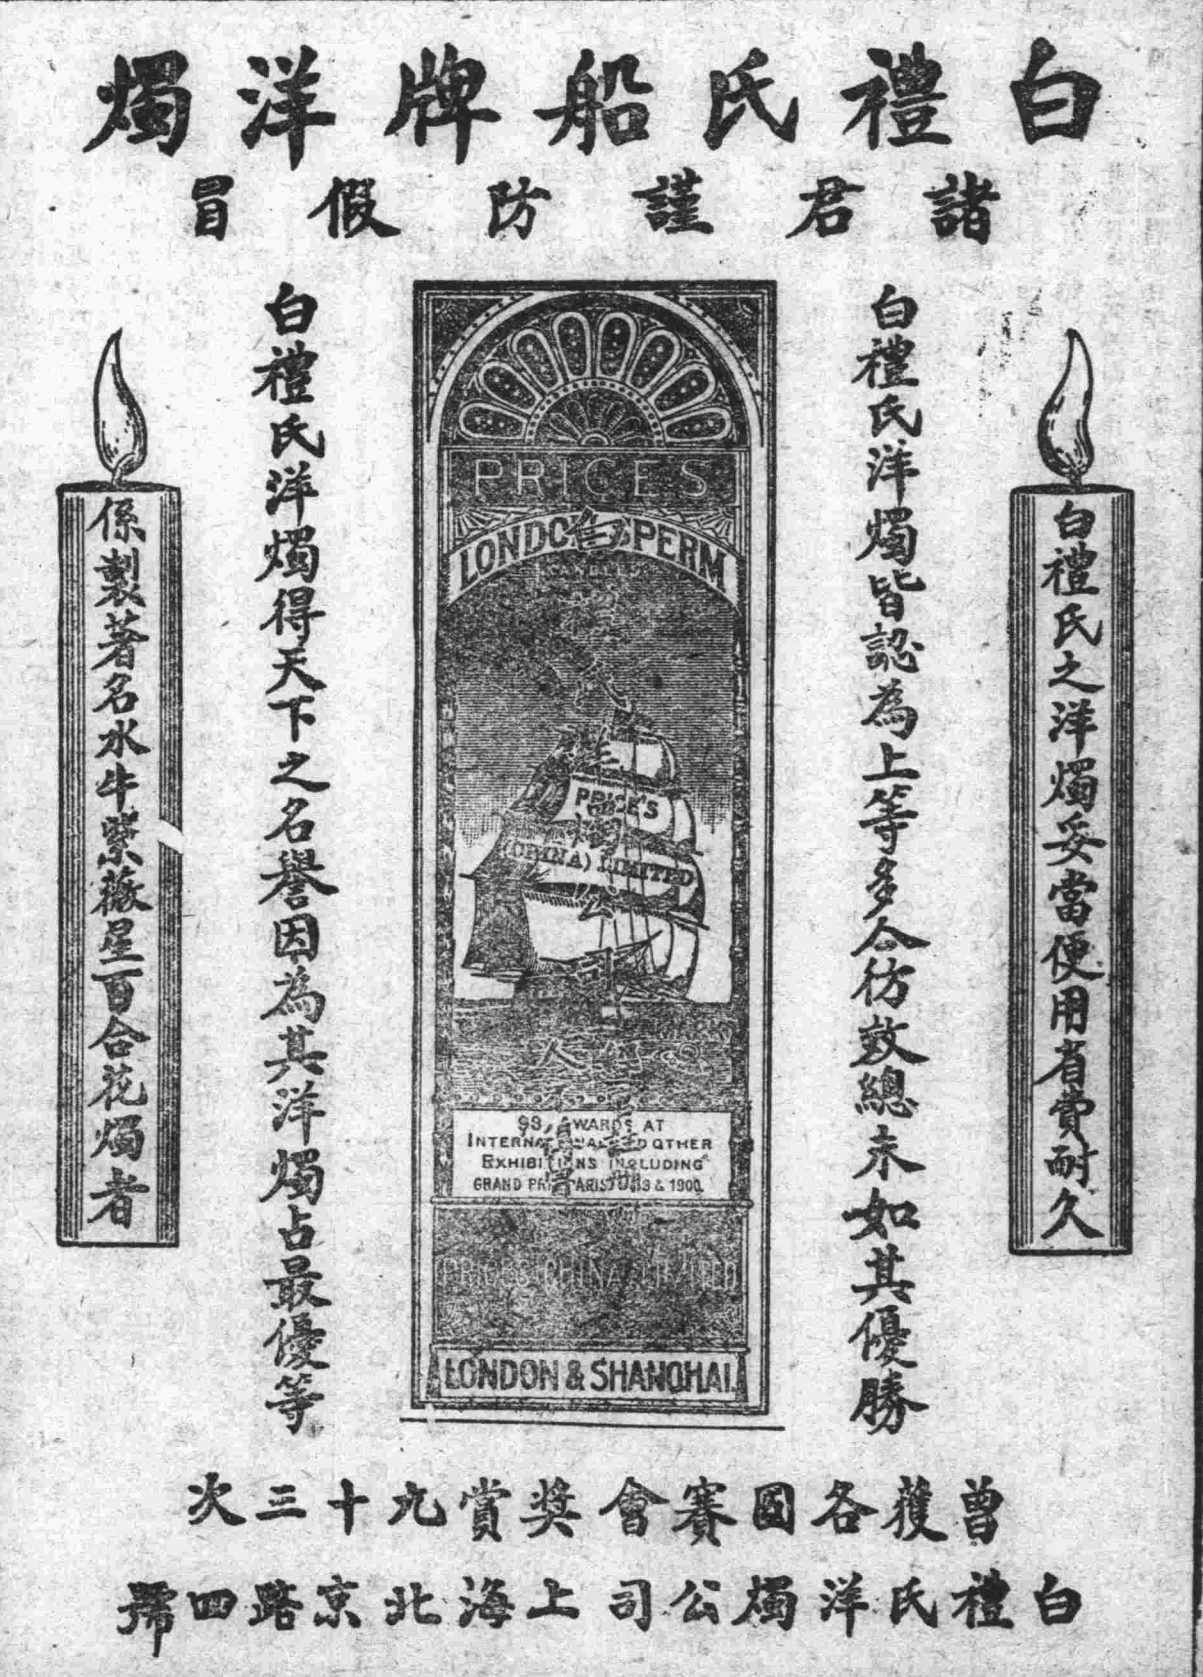 白禮氏船牌洋燭
諸君謹防假冒
白禮氏之洋燭妥當便用省費耐久
白禮氏洋燭皆認為上等多人彷效總未如其優勝
PRICES
LONDON SPERM
PRICE'S
(CHINA) LIMITED
93 AWARDS AT
INTERNATIONAL AND OTHER
EXHIBITIONS INCLUDING
GRAND PRIX PARIS & 1900.
LONDON & SHANGHAI.
白禮氏洋燭得天下之名譽因為其洋燭占最優等
係製著名水牛紫薇星百合花燭者
曾獲各國賽會獎賞九十三次
白禮氏洋燭公司上海北京路四號